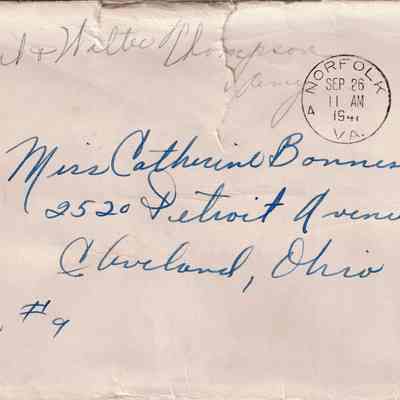 & Walter Thompson
NORFOLK
SEP 26
11 AM
1941
VA.
4
Miss Catherine Bonnes
2520 Detroit Avenu
Cleveland, Ohio
#9